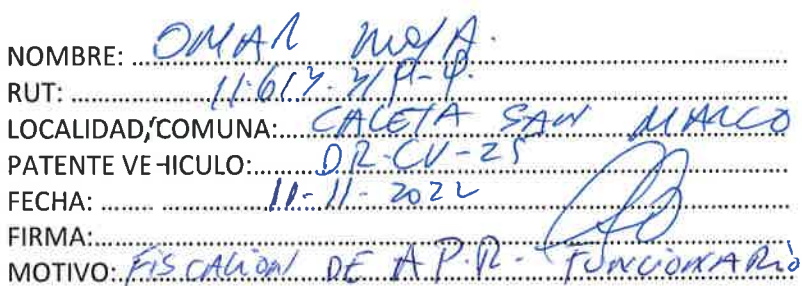 NOMBRE: OMAR MOYA.
RUT:
LOCALIDAD, COMUNA: CALETA SAN MARCO
PATENTE VEHICULO: DR-CV-25
FECHA: 11-11-2022
FIRMA:
MOTIVO: FISCALION DE A.P.R. - FUNCIONARIO